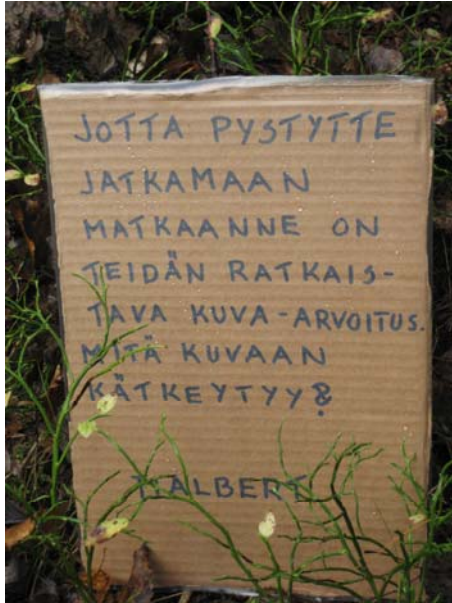 JOTTA PYSTYTTE
JATKAMAAN
MATKAANNE ON
TEIDÄN RATKAIS-
TAVA KUVA-ARVOITUS.
MITÄ KUVAAN
KÄTKEYTYY?
T. ALBERT